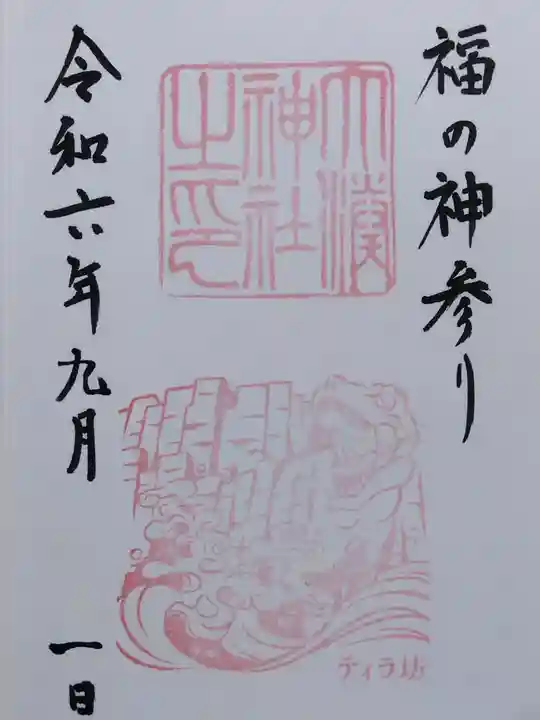 福の神参り
大湊
神社
之印
ティラ坊
令和六年九月 一日